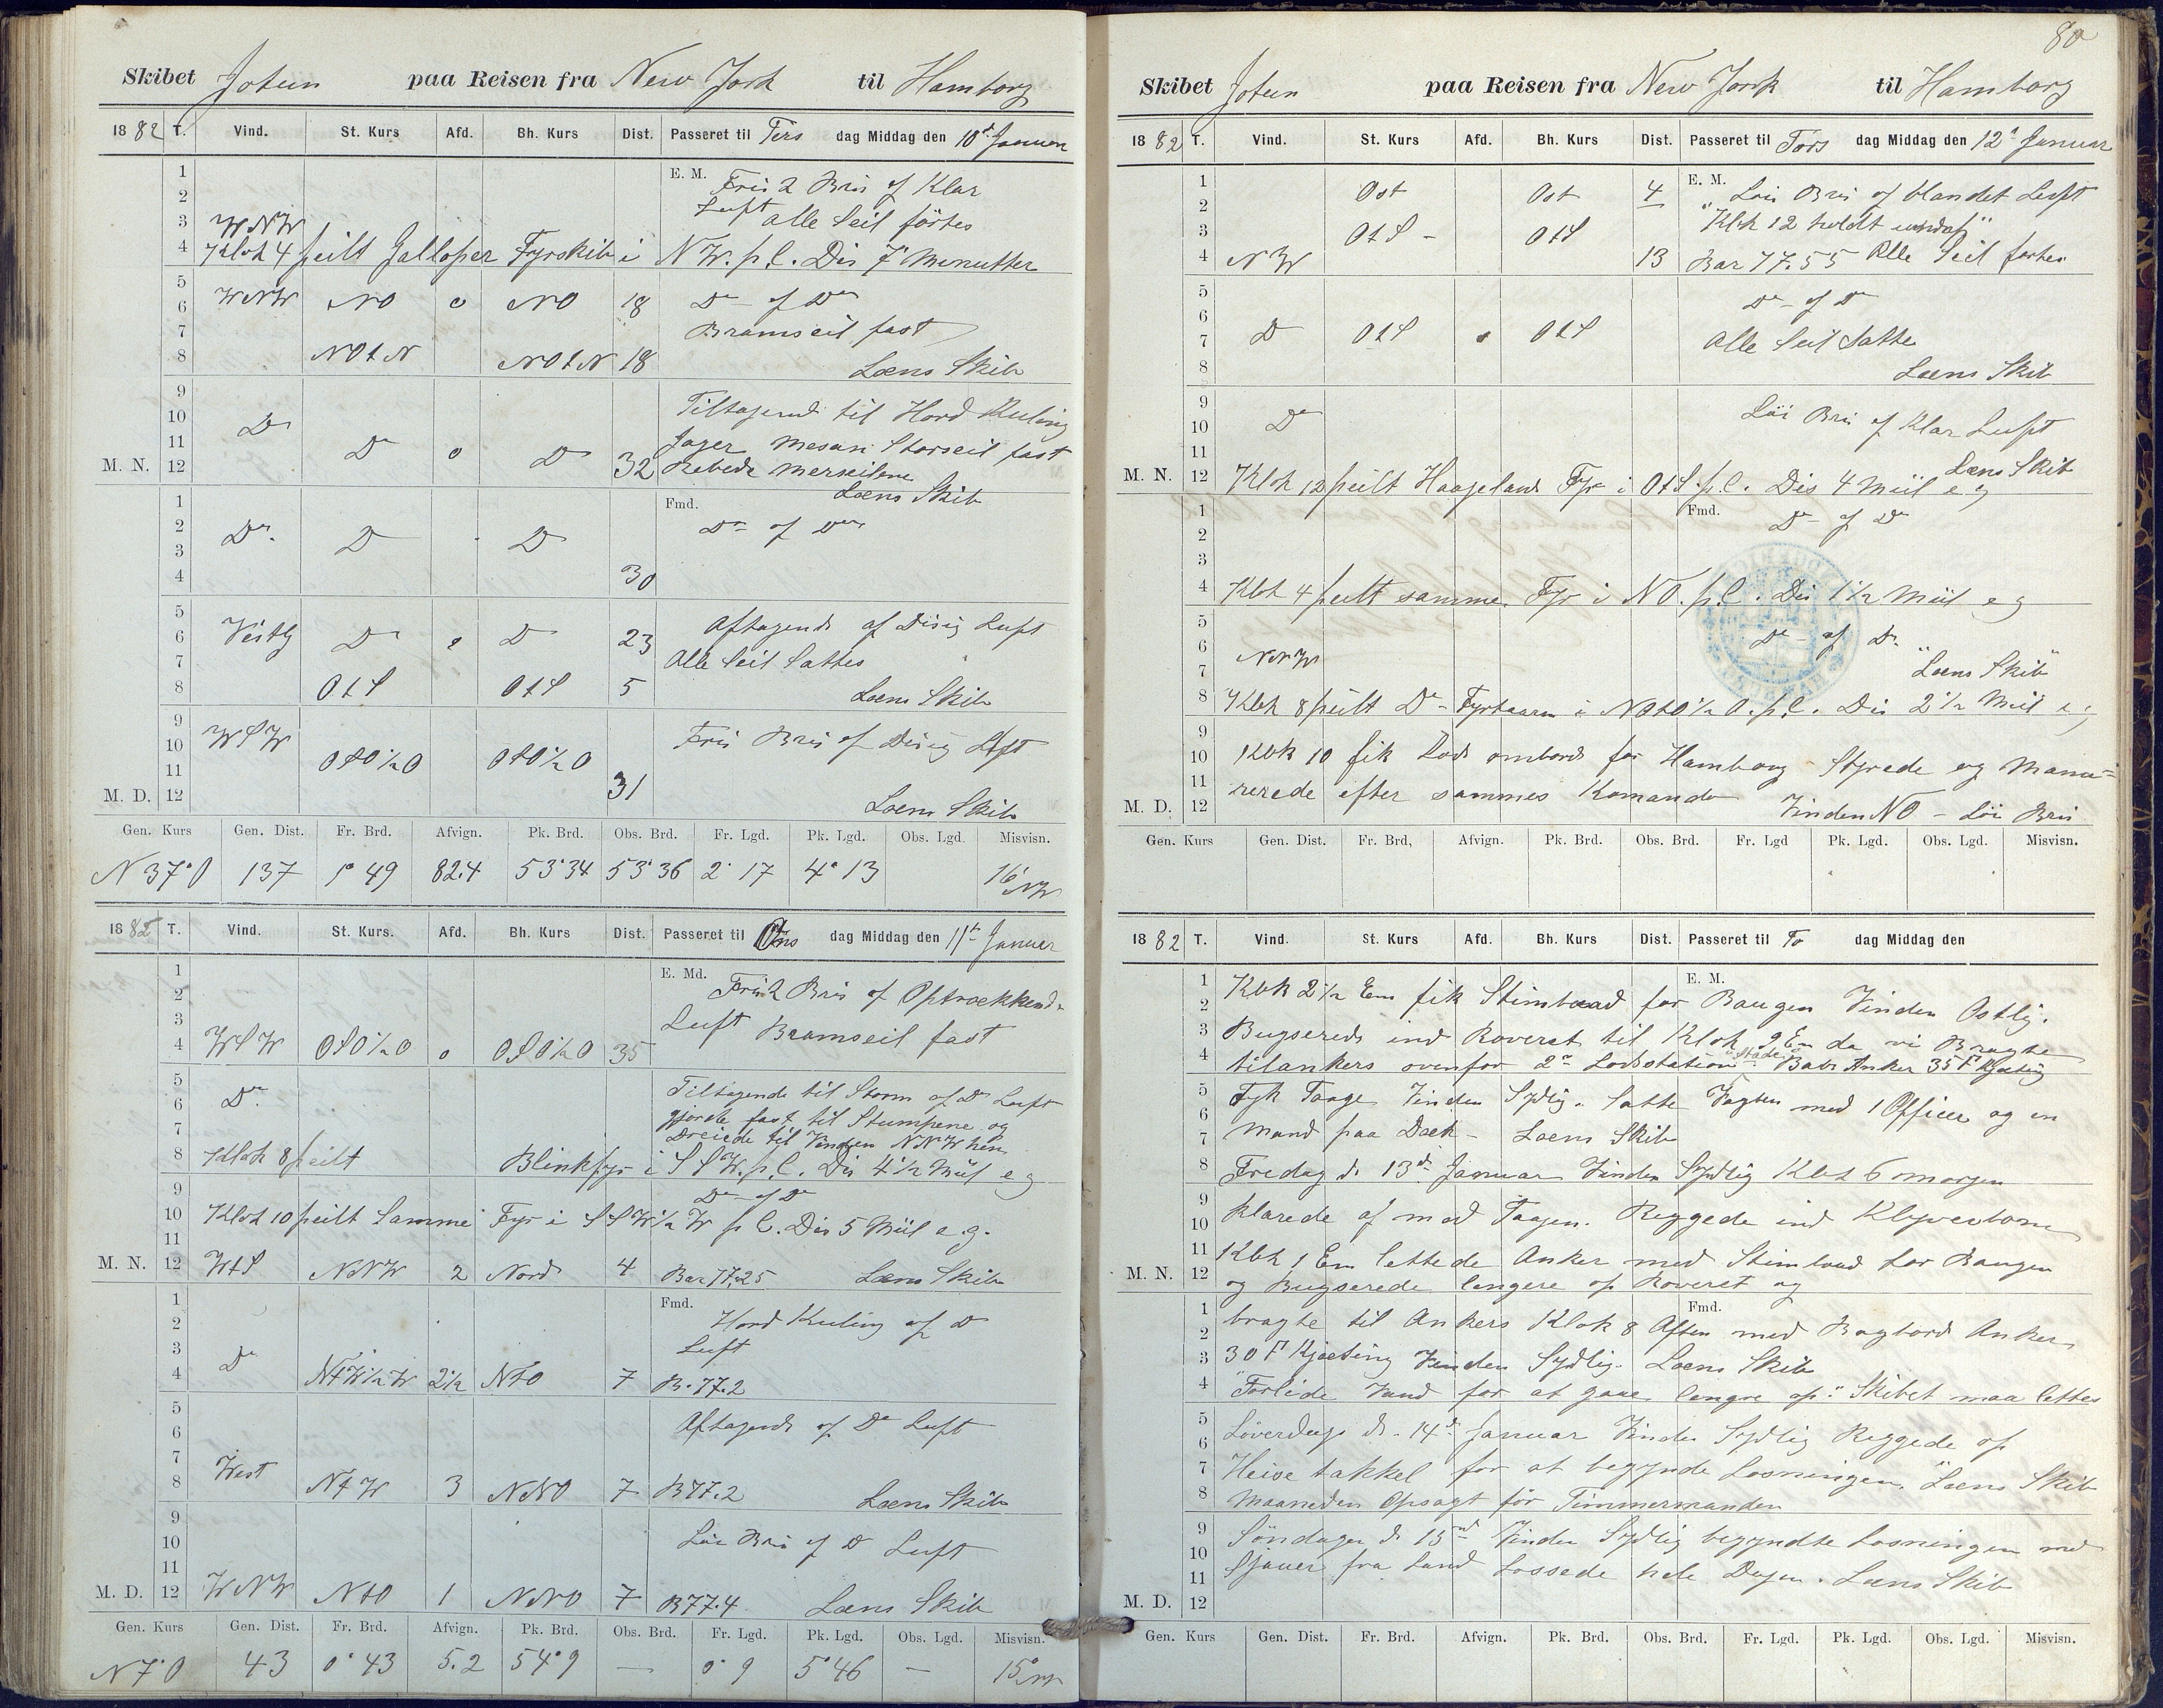 Skibet Jotun paa Reisen fra New York til Hamborg
1882 T. Vind. St. Kurs Afd. Bh. Kurs Dist. Passeret til Tirs dag Middag den 10d. Januar
1 E. M. Frisk Bris af Klar
2 Luft alle Seil førtes
3 WNW
4 Klok 4 peilt Galloper Fyrskib i NW. p.C. Dis 7 Menutter
5
6 WNW NO 0 NO 18 Do - af Do
7 Bramseil fast
8 NOtN NOtN 18 Læns Skib
9 Tiltagend til Hard Kuling
10 Do
11 D 0 D Jager Mesan Storseil fast
M. N. 12 32 Rebede Merseilene
Læns Skib
1 Fmd. Do af Do
2 Do. D D
3
4 30
5
6 Vestlg D 0 D 23 Aftagende af Disig Luft
7 Alle Seil Sattes
8 OtS OtS 5 Læns Skib
9
10 WSW Fris Bris af Disig Luft
11 OSO½O OSO½O
M. D. 12 31 Læns Skib
Gen. Kurs Gen. Dist. Fr. Brd. Afvign. Pk. Brd. Obs. Brd. Fr. Lgd. Pk. Lgd. Obs. Lgd Misvisn.
N 37° O 137 1° 49 82.4 53° 34 53° 36 2° 17 4° 13 16° NW
1882 T. Vind. St. Kurs. Afd. Bh. Kurs Dist. Passeret til Ons dag Middag den 11te Januar
1 E. Md. Frisk Bris af Optrækkend
2
3 Luft Bramseil fast
4 WSW OSO½O 0 OSO½O 35
5 Tiltagende til Storm af Do Luft
6 Do. gjorde fast til Stumpene og
7 Dreiede til Vinden NNW hen
8 Klok 8 peilt Blinkfyr i SSW. p.C. Dis 4½ Miil e g
9 Do - af Do
10 Klok 10 peilt Samme Fyr i SSW½W p C. Dis 5 Miil e.g.
11
M. N. 12 WtS NNW 2 Nord 4 Bar 77,25 Læns Skib
1 Fmd. Hard Kuling af D
2 Luft
3
4 Do NtW½W 2½ NtO 7 B. 77.2
5
6 Aftagende af Do Luft
7
8 West NtW 3 NNO 7 B 77.2 Læns Skib
9
10 Løi Bris af D Luft
11
M. D. 12 WNW NtO 1 NNO 7 B 77.4 Læns Skib
Gen. Kurs Gen. Dist. Fr. Brd. Afvign. Pk. Brd. Obs. Brd. Fr. Lgd. Pk. Lgd. Obs. Lgd. Misvisn.
N 7° O 43 0° 43 5.2 54° 9 — 0° 9 5° 46 — 15° NW
80
Skibet Jotun paa Reisen fra New York til Hamborg
1882 T. Vind. St. Kurs Afd. Bh. Kurs Dist. Passeret til Tors dag Middag den 12te Januar
1 Ost Ost 4 E. M. Løi Bris af blandet Luft
2 "Klok 12 holdt undaf"
3 OtS - OtS
4 NW 13 Bar 77.55 Alle Seil førtes
5 Do - af Do
6
7 D OtS OtS Alle Seil Satte
8 Læns Skib
9 Løi Bris af Klar Luft
10 Do
11 Læns Skib
M. N. 12 Klok 12 peilt Haageland Fyr i OtS p.C. Dis 4 Miil e g
1 Fmd. Do - af Do
2
3
4 Klok 4 peilt samme Fyr i NO. p.C. Dis 1½ Miil e g
5
6 NNW Do - af Do.
7 "Læns Skib"
8 Klok 8 peilt Do - Fyrtaarn i NOtO½O. p.C. Dis 2½ Miil e g
9
10 Klok 10 fik Lods ombord for Hamborg - Styrede og Manu-
11 rerede efter sammes Komando
M. D. 12 Vinden NO - Løi Bris
Gen. Kurs Gen. Dist. Fr. Brd, Afvign. Pk. Brd. Obs. Brd. Fr. Lgd Pk. Lgd. Obs. Lgd. Misvisn.
1882 T. Vind. St. Kurs Afd. Bh. Kurs Dist. Passeret til To dag Middag den
E. M.
1 Klok 2½ Em fik Stimbaad for Baugen Vinden Østlig.
2
3 Bugserede ind Roveret til Klok 9 Em da vi Bragte
4 tilankers ovenfor 2n Lodsstation "Stade" Babr Anker 35 F Kjæting
5 Tyk Taage Vinden Sydlig. Satte Vagten med 1 Officer og en
6
7 Mand paa Dæk - Læns Skib
8 Fredag d. 13de Januar Vinden Sydlig Klok 6 morgen
9
10 Klarede af med Taagen. Riggede ind Klyverbom
11 Klok 1 Em lettede Anker med Stimbaad for Baugen
M. N. 12 og Bugserede længere op Roveret og
Fmd.
1 bragte til Ankers Klok 8 Aften med Bagbord Anker
2
3 30 F Kjæting Vinden Sydlig. Læns Skib
4 "Forlide Vand for at gaae længre op." Skibet maa lettes
5 Løverdags d. 14d. Januar Vinden Sydlig Riggede op
6
7 Heise takkel for at begynde Losningen. Læns Skib
8 Maaneden Opsagt for Timmermanden
9 Søndagen d. 15nd Vinden Sydlig begyndte Losningen med
10
11 Sjauer fra Land Lossede hele Dagen. Læns Skib
M. D. 12
Gen. Kurs Gen. Dist. Fr. Brd. Afvign. Pk. Brd. Obs. Brd. Fr. Lgd. Pk. Lgd. Obs. Lgd. Misvisn.